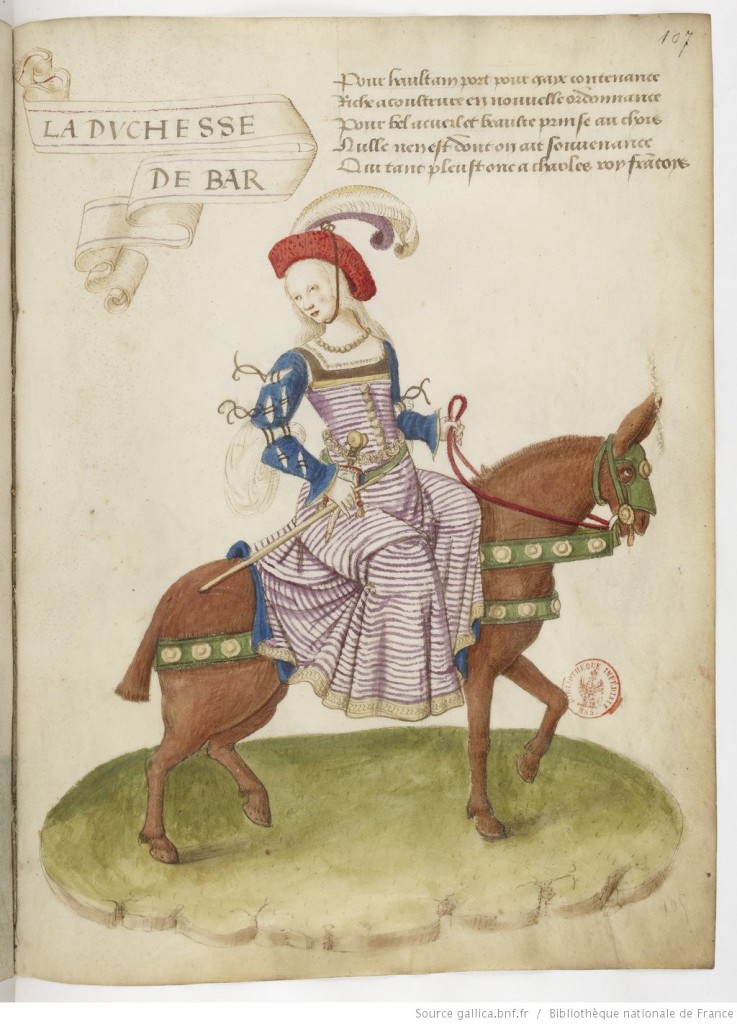 107
LA DVCHESSE
DE BAR
Pour haultain port pour gaye contenance
Riche acoustrure en nouvelle ordonnance
Pour bel acueil et beaulte prinse au chois
Nulle nen est dont on ait souvenance
Qui tant pleust onc a charles roy francoys
BIBLIOTHÈQUE IMPÉRIALE
MSS.
Source gallica.bnf.fr / Bibliothèque nationale de France